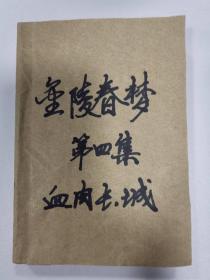 金陵春梦
第四集
血肉长城